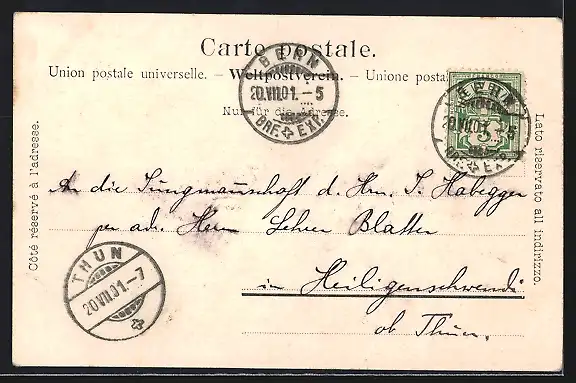 Carte postale.
Union postale universelle. – Weltpostverein. – Unione postale
Nur für die Adresse.
BERN
20.VII.01.–5
BRF. EXP.
BERN
20.VII.01.–5
BRF. EXP.
5
Côté réservé à l'adresse.
Lato riservato all indirizzo.
An die Jungmannschaft d. Hrn. J. Habegger
per adr. Herrn Lehrer Blatter
in Heiligenschwendi
ob Thun.
THUN
20.VII.01.–7